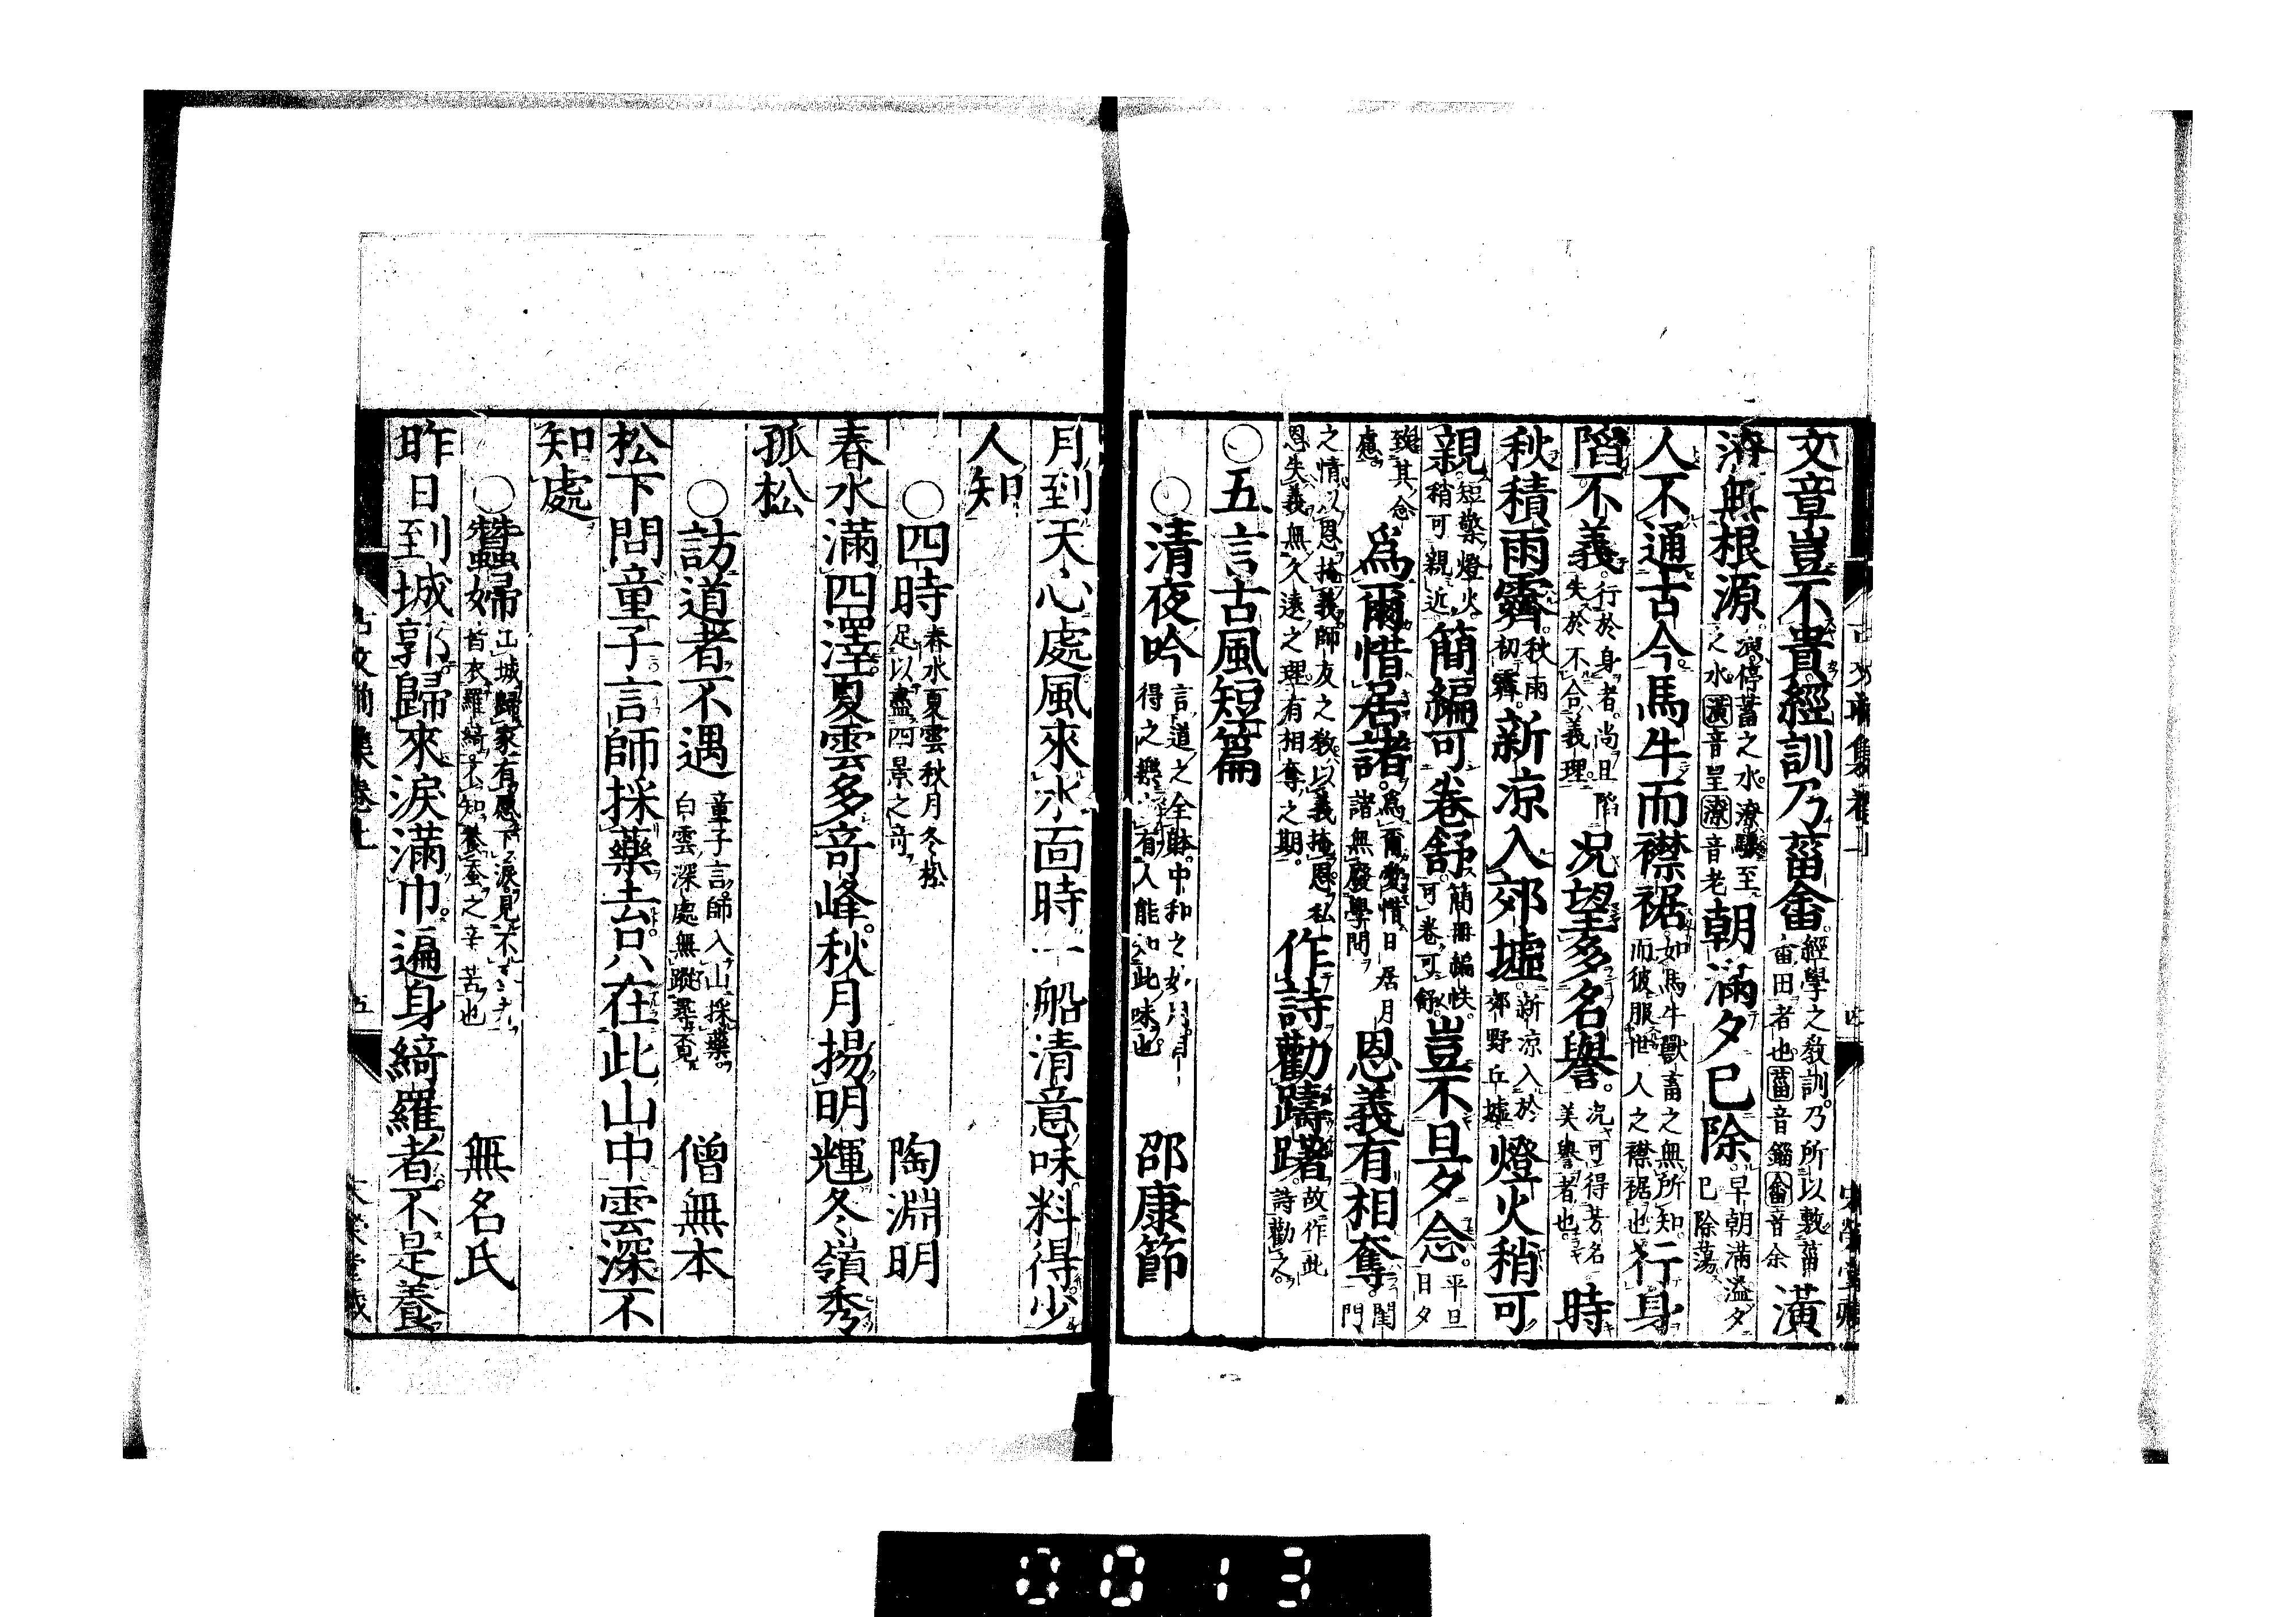 文章豈不貴經訓乃菑畬經學之教訓乃所以敷菑畬田者也菑音錙畬音余潢
潦無根源潢停蓄之水潦驟至之水潢音呈潦音老朝滿夕已除早朝滿溢夕已除蕩
人不通古今馬牛而襟裾如馬牛獸畜之無所知而彼服世人之襟裾也行身
陷不義行於身者尚且陷失於不合義理况望多名譽况可得芳名美譽者也時
秋積雨霽秋雨初霽新凉入郊墟新凉入於郊野丘墟燈火稍可
親短檠燈火稍可親近簡編可卷舒簡冊編帙可卷可舒豈不旦夕念平旦日夕
致其念慮爲爾惜居諸爲爾愛惜日居月諸無廢學問恩義有相奪閨門
之情以恩掩義師友之教以義掩恩私恩失義無久遠之理有相奪之期作詩勸躊躇故作此詩勸之
○五言古風短篇
○清夜吟言道之全財中和之妙用自得之樂少有人能知此味也邵康節
月到天心處風來水面時一船清意味料得少
人知
○四時春水夏雲秋月冬松足以盡四景之奇陶淵明
春水滿四澤夏雲多奇峰秋月揚明輝冬嶺秀
孤松
○訪道者不遇童子言師入山採藥白雲深處無蹤尋覓僧無本
松下問童子言師採藥去只在此山中雲深不
知處
○蠶婦出城歸家有感下淚見不皆衣羅綺不知養蚕之辛苦也無名氏
昨日到城郭歸來淚滿巾遍身綺羅者不是養
古文前集卷上
五
0013